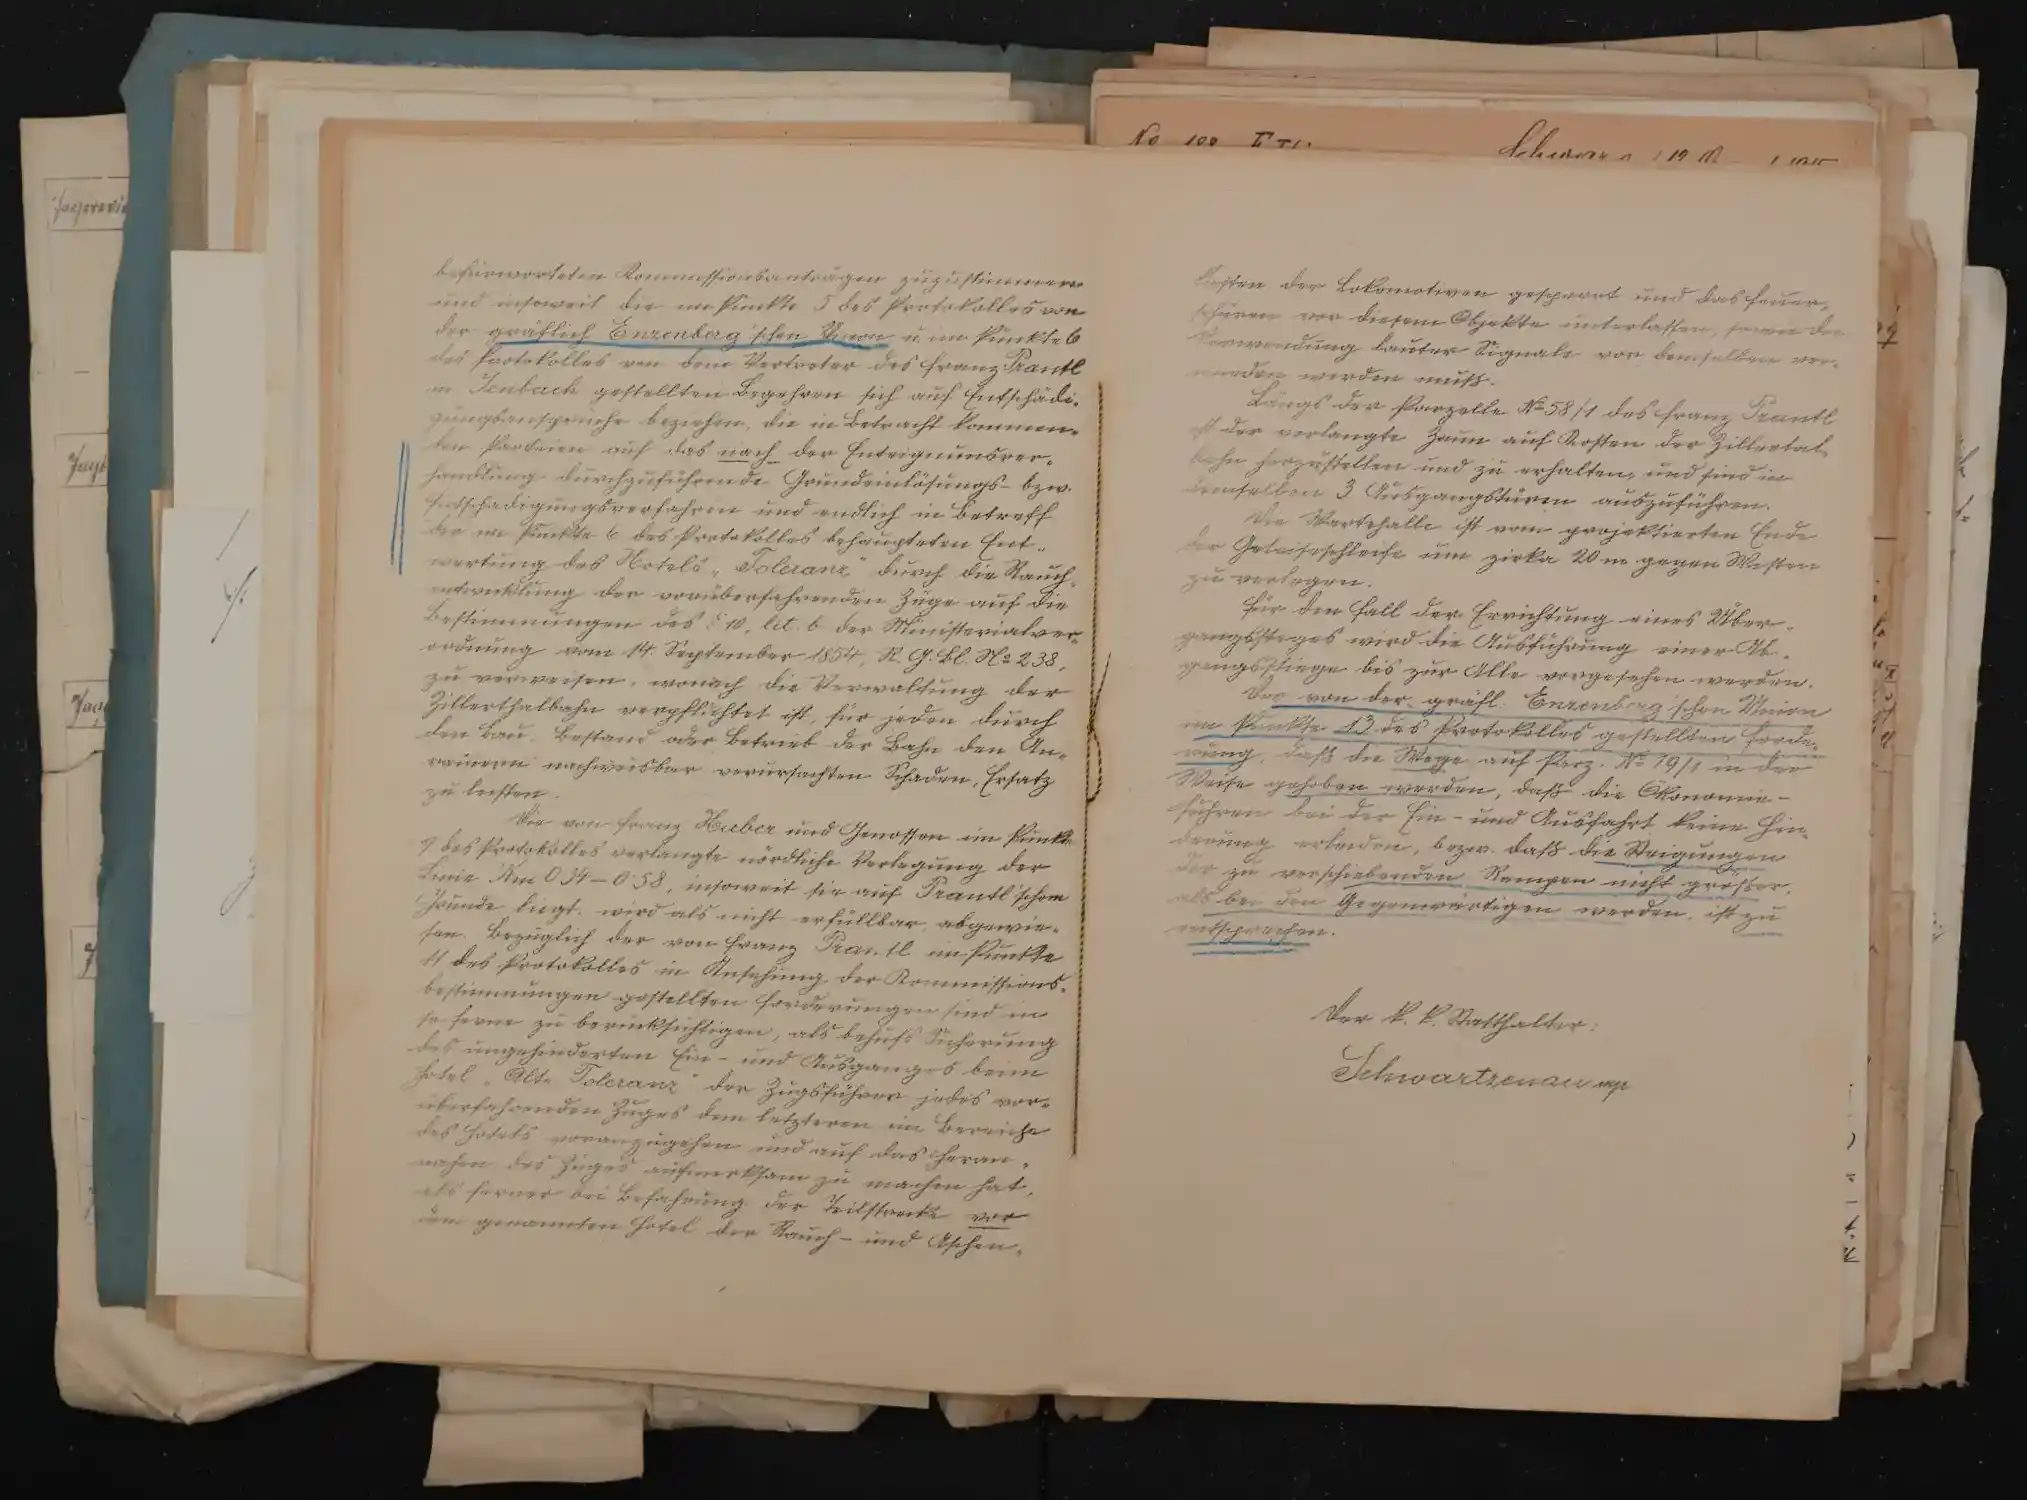 befürworteten Kommissionsanträgen zuzustimmen
und insoweit die im Punkte 5 des Protokolles von
der gräflich Enzenberg'schen Union u. im Punkte 6
des Protokolles von dem Vertreter des Franz Prantl
in Jenbach gestellten Begehren sich auf Entschädi-
gungsansprüche beziehen, die in Betracht kommen-
den Parteien auf das nach der Enteignungsver-
handlung durchzuführende Grundeinlösungs- bzw.
Entschädigungsverfahren und endlich in Betreff
der im Punkte 6 des Protokolles behaupteten Ent-
wertung des Hotels „Toleranz" durch die Rauch-
entwicklung der vorüberfahrenden Züge auf die
Bestimmungen des § 10, lit. b der Ministerialver-
ordnung vom 14. September 1854, R. G. Bl. No 238,
zu verweisen, wonach die Verwaltung der
Zillerthalbahn verpflichtet ist, für jeden durch
den Bau, Bestand oder Betrieb der Bahn den An-
rainern nachweisbar verursachten Schaden, Ersatz
zu leisten.
Die von Franz Huber und Genossen im Punkte
9 des Protokolles verlangte nördliche Verlegung der
Linie Km 0·34 – 0·58, insoweit sie auf Prantl'schem
Grunde liegt, wird als nicht erfüllbar, abgewie-
sen. Bezüglich der von Franz Prantl im Punkte
11 des Protokolles in Ansehung der Kommissions-
bestimmungen gestellten Forderungen sind in
so ferne zu berücksichtigen, als behufs Sicherung
des ungehinderten Ein- und Ausganges beim
Hotel „Alte Toleranz" der Zugsführer jedes vor-
überfahrenden Zuges dem letzteren im Bereiche
des Hotels voranzugehen und auf das Heran-
nahen des Zuges aufmerksam zu machen hat,
als ferner bei Befahrung der Teilstrecke vor
dem genannten Hotel der Rauch- und Aschen-
kasten der Lokomotiven gesperrt und das Feuer-
schüren vor diesem Objekte unterlassen, sowie die
Verwendung lauter Signale vor demselben ver-
mieden werden muß.
Längs der Parzelle No 58/1 des Franz Prantl
ist der verlangte Zaun auf Kosten der Zillertal-
bahn herzustellen und zu erhalten, und sind in
demselben 3 Ausgangstüren auszuführen.
Die Wartehalle ist vom projektierten Ende
der Geleiseschleife um zirka 20 m gegen Westen
zu verlegen.
Für den Fall der Errichtung eines Über-
gangssteges wird die Ausführung einer Ab-
gangsstiege bis zur Alle vorgesehen werden.
Der von der gräfl. Enzenberg'schen Union
im Punkte 13 des Protokolles gestellten Forde-
rung, daß die Wege auf Parz. No 19/1 in der
Weise gehoben werden, daß die Ökonomie-
fuhren bei der Ein- und Ausfahrt keine Hin-
derung erleiden, bezw. daß die Steigungen
der zu verschiebenden Rampen nicht größer,
als bei den Gegenwärtigen werden, ist zu
entsprechen.
Der k. k. Statthalter:
Schwartzenau mp